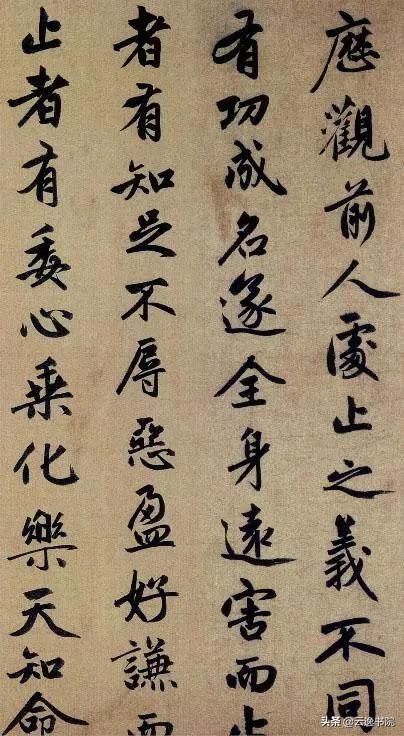 歷觀前人處止之義不同
有功成名遂全身遠害而止
者有知足不辱惡盈好謙而
止者有委心乘化樂天知命
头条 @云逸书院